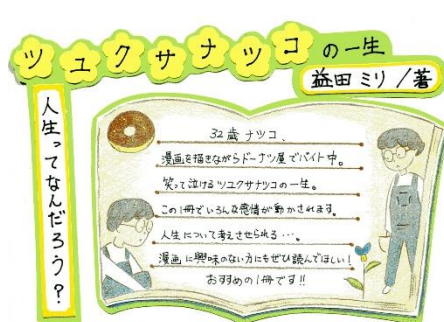 ツユクサナツコの一生
益田ミリ/著
人生ってなんだろう?
32歳ナツコ、
漫画を描きながらドーナツ屋でバイト中。
笑って泣けるツユクサナツコの一生。
この1冊でいろんな感情が動かされます。
人生について考えさせられる…。
漫画に興味のない方にもぜひ読んでほしい!
おすすめの1冊です!!